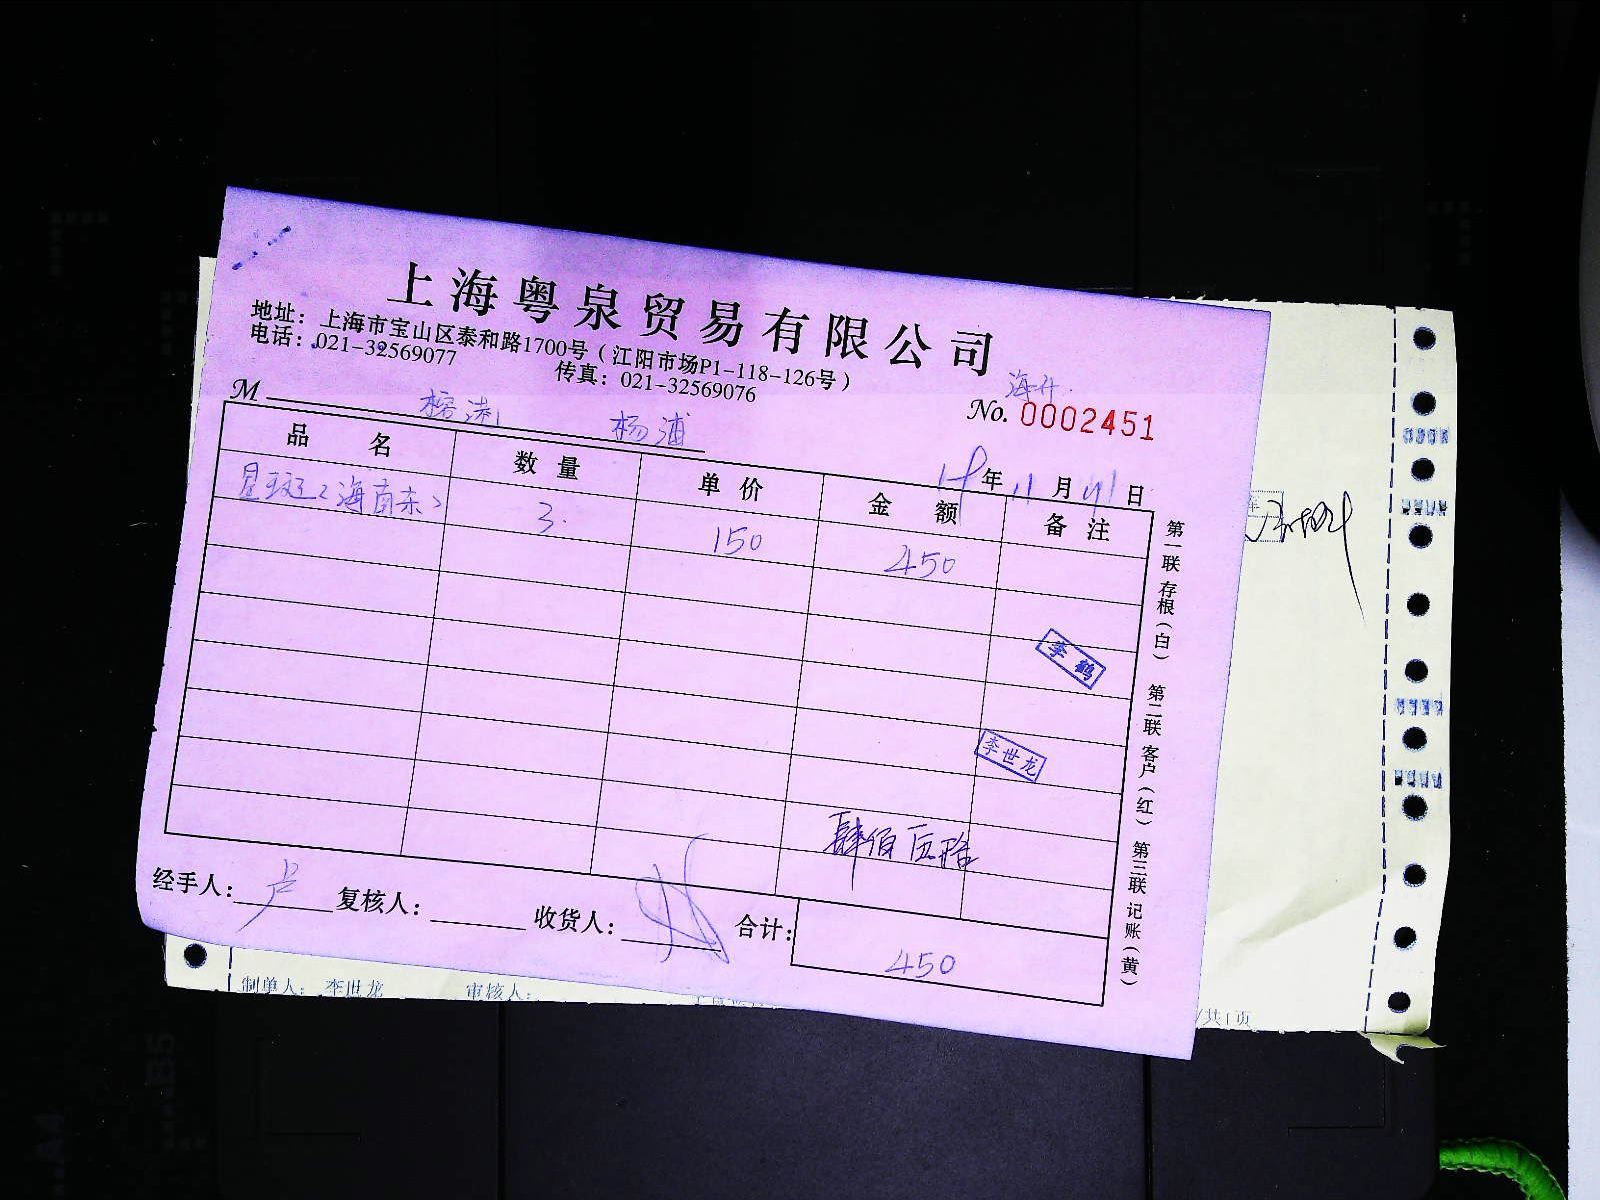 上海粤泉贸易有限公司
地址：上海市宝山区泰和路1700号（江阳市场P1-118-126号）
电话：021-32569077 传真：021-32569076
M 杨浦
No. 0002451
年 11 月 日
品名 数量 单价 金额 备注
星斑（海南东） 3 150 450
李鹤
李世龙
肆佰伍拾
经手人： 复核人： 收货人： 合计： 450
第一联 存根（白） 第二联 客户（红） 第三联 记账（黄）
制单人： 李世龙 审核人：
/共1页